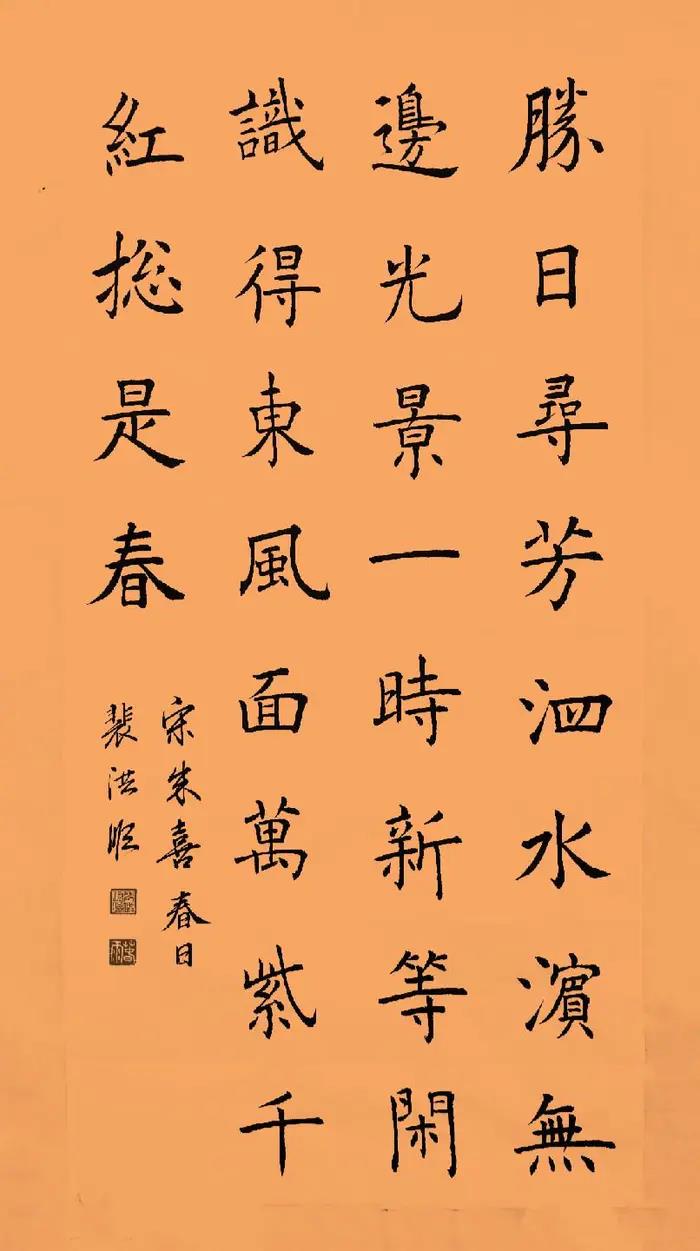 勝日尋芳泗水濱無
邊光景一時新等閑
識得東風面萬紫千
紅捴是春
宋朱喜春日
裴洪順